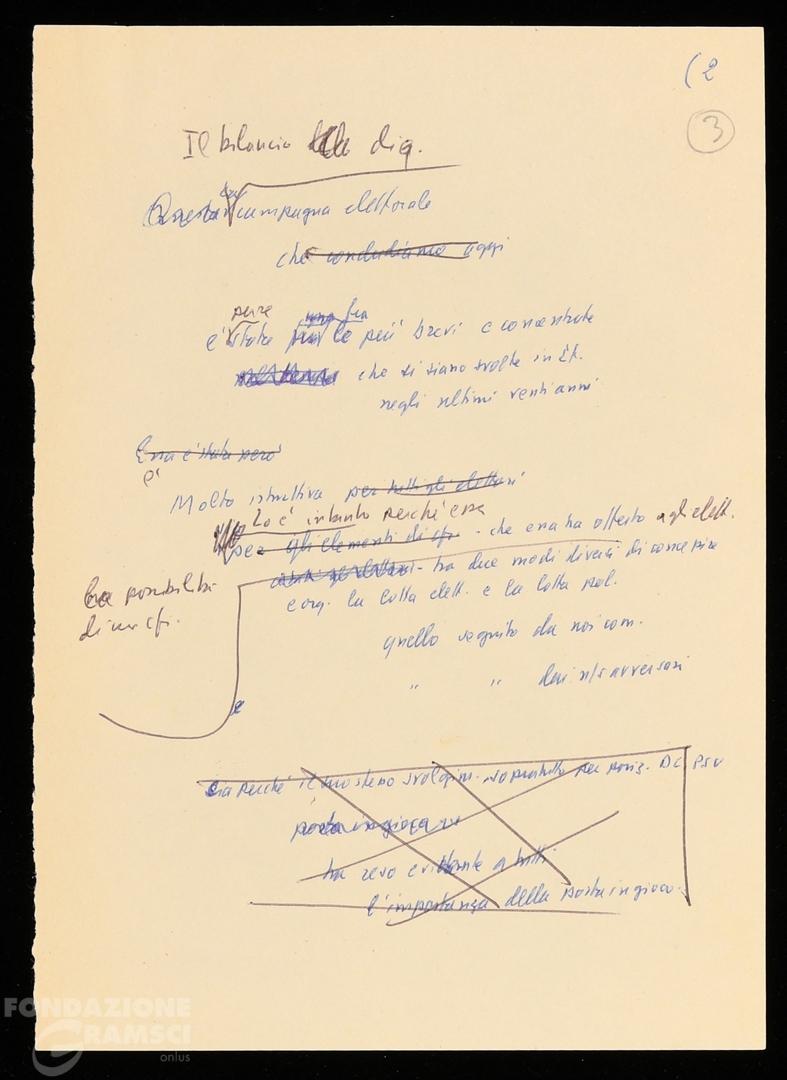 (2
3
Il bilancio della dig.
Questa campagna elettorale
che concludiamo oggi
pure una fra
è stata le più brevi e concentrate
che si siano svolte in It.
negli ultimi venti anni
Essa è stata però
è
Molto istruttiva per tutti gli elettori
Lo è intanto perché essa
per gli elementi di cfr. - che essa ha offerto agli elett.
la possibilità
di un cfr.
tra due modi diversi di concepire
e org. la lotta elett. e la lotta pol.
quello seguito da noi com.
" " dai n/s avversari
e
sia perché il suo stesso svolgim. soprattutto per posiz. DC PSU
posta in gioco
ha reso evidente a tutti
l'importanza della posta in gioco.
FONDAZIONE
GRAMSCI
onlus